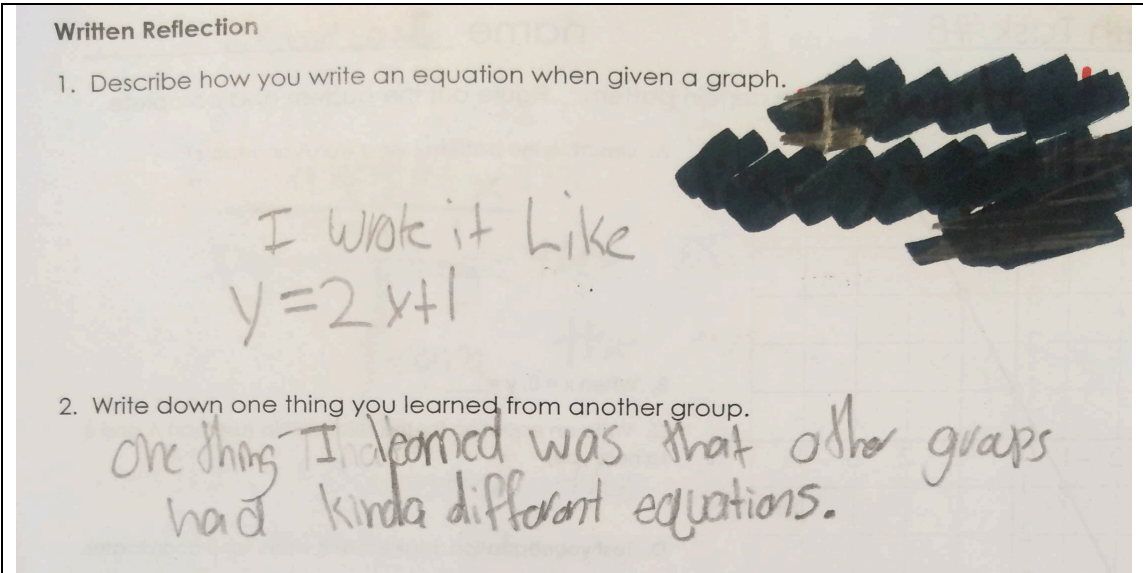 Written Reflection
1. Describe how you write an equation when given a graph. I
I wrote it Like
y=2x+1
2. Write down one thing you learned from another group.
One thing I learned was that other groups
had kinda different equations.